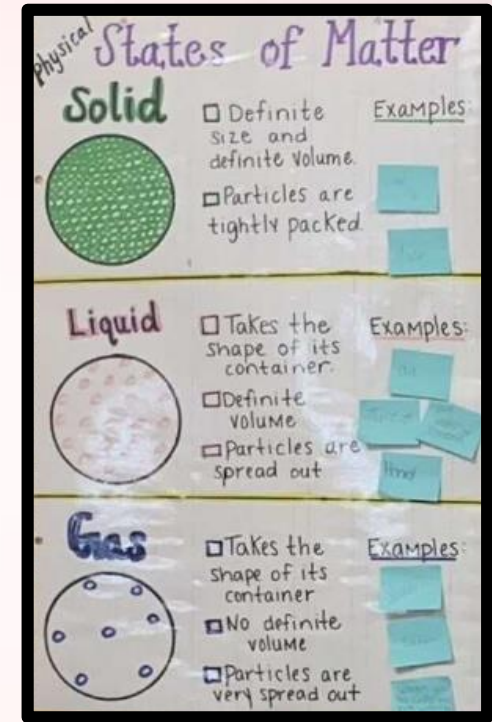 Physical
States of Matter
Solid
Definite
size and
definite volume.
Particles are
tightly packed
Examples:
Liquid
Takes the
shape of its
container.
Definite
volume
Particles are
spread out
Examples:
Gas
Takes the
shape of its
container
No definite
volume
Particles are
very spread out
Examples: